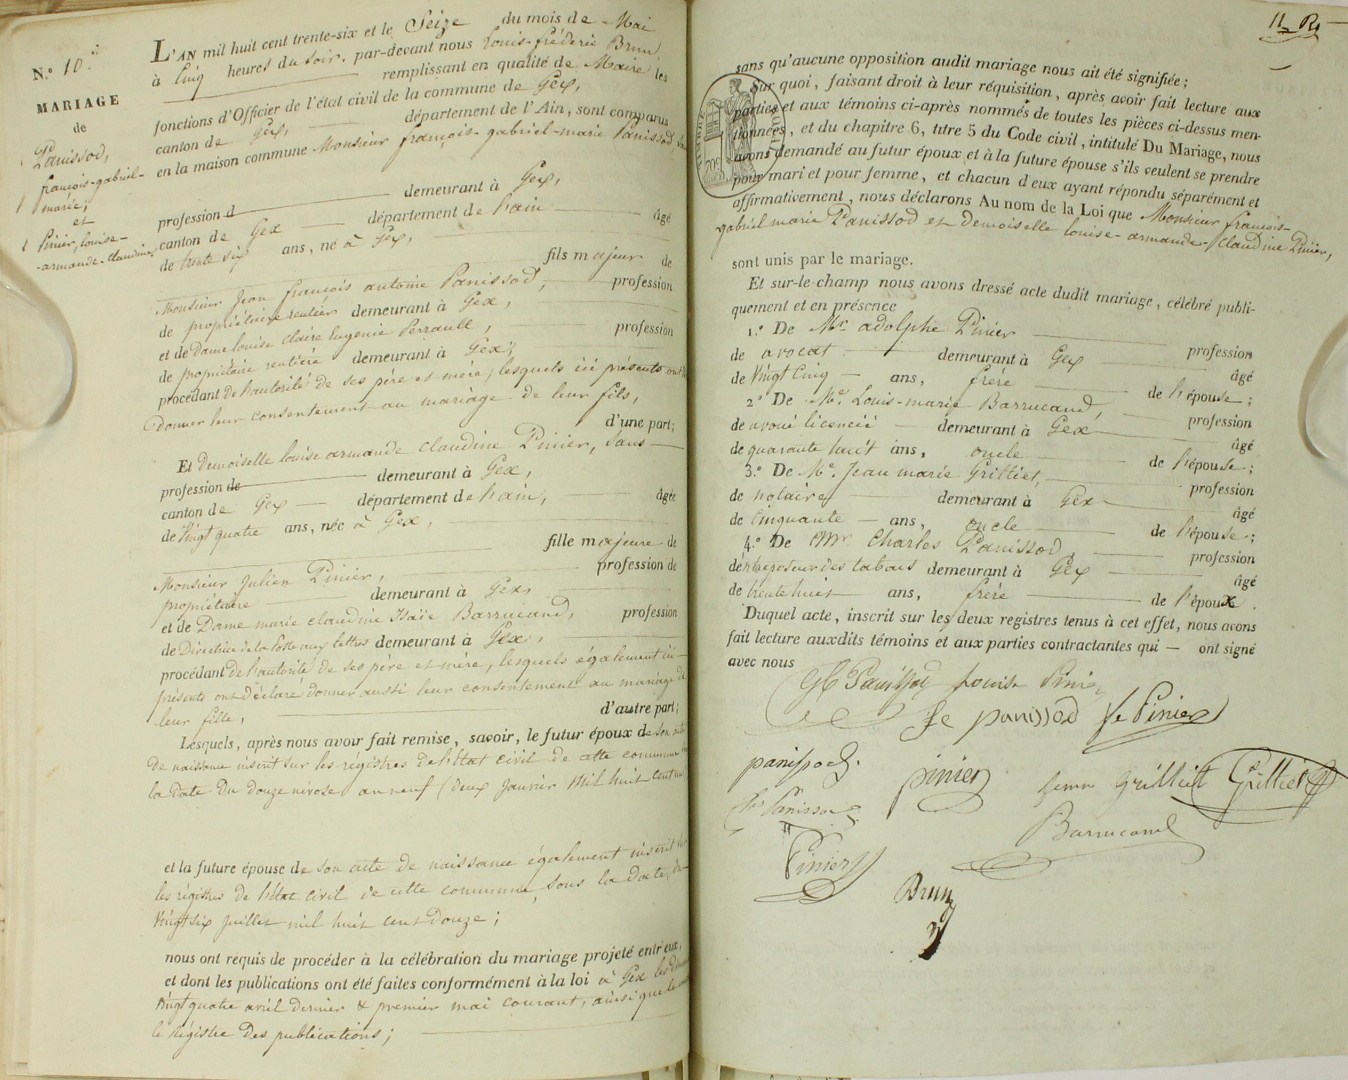 N.º 10.
MARIAGE
de
Panissod,
françois-gabriel-
marie;
et
Pinier, louise-
-armande-claudine,
L'AN mil huit cent trente-six et le Seize du mois de Mai
à Cinq heures du soir, par-devant nous Louis-frédéric Brun
remplissant en qualité de Maire les
fonctions d'Officier de l'état civil de la commune de Gex,
canton de Gex, département de l'Ain, sont comparus
en la maison commune Monsieur françois-gabriel-marie Panissod, sans
profession d demeurant à Gex,
canton de Gex département de l'ain âgé
de trente six ans, né à Gex,
fils majeur de
Monsieur Jean françois antoine Panissod, profession
de propriétaire rentier demeurant à Gex,
et de Dame louise Claire Eugenie Perrault, profession
de propriétaire rentière demeurant à Gex,
procédant de l'autorité de ses père et mère, lesquels ici présents ont
donner leur consentement au mariage de leur fils,
d'une part;
Et demoiselle louise armande Claudine Pinier, sans
profession de demeurant à Gex,
canton de Gex département de l'ain, âgée
de Vingt quatre ans, née à Gex,
fille majeure de
Monsieur Julien Pinier, profession de
propriétaire demeurant à Gex,
et de Dame marie claudine Barrucand, profession
de Directrice de la Poste aux lettres demeurant à Gex,
procédant de l'autorité de ses père et mère, lesquels également ici
présents ont déclaré donner aussi leur consentement au mariage de
leur fille, d'autre part;
Lesquels, après nous avoir fait remise, savoir, le futur époux de son acte
de naissance inscrit sur les régistres de l'état civil de cette commune
la date du douze nivose an neuf (deux Janvier Mil huit cent un)
et la future épouse de son acte de naissance également inscrit sur
les régistres de l'état civil de cette commune, sous la date du
Vingt six juillet mil huit cent douze;
nous ont requis de procéder à la célébration du mariage projeté entr'eux,
et dont les publications ont été faites conformément à la loi à Gex les
vingt quatre avril dernier & premier mai courant, ainsi que le
le régistre des publications;
sans qu'aucune opposition audit mariage nous ait été signifiée;
Sur quoi, faisant droit à leur réquisition, après avoir fait lecture aux
parties et aux témoins ci-après nommés de toutes les pièces ci-dessus men-
tionnées, et du chapitre 6, titre 5 du Code civil, intitulé Du Mariage, nous
avons demandé au futur époux et à la future épouse s'ils veulent se prendre
pour mari et pour femme, et chacun d'eux ayant répondu séparément et
affirmativement, nous déclarons Au nom de la Loi que Monsieur françois-
gabriel marie Panissod et demoiselle louise-armande-claudine Pinier,
sont unis par le mariage.
Et sur-le-champ nous avons dressé acte dudit mariage, célébré publi-
quement et en présence
1.º De Mr. adolphe Pinier profession
de avocat demeurant à Gex âgé
de Vingt Cinq ans, frère de l'épouse;
2.º De Me. Louis-marie Barrucand, profession
de avoué licencié demeurant à Gex âgé
de quarante huit ans, oncle de l'épouse;
3.º De Me. Jean marie Grilliet, profession
de notaire demeurant à Gex âgé
de Cinquante ans, oncle de l'épouse;
4.º De Mr. Charles Panissod, profession
d'Entreposeur des tabacs demeurant à Gex âgé
de trente huit ans, frère de l'époux.
Duquel acte, inscrit sur les deux registres tenus à cet effet, nous avons
fait lecture auxdits témoins et aux parties contractantes qui ont signé
avec nous
Panissod Louise Pinier
panissod Pinier
panissod. pinier Grilliet Grilliet
Panissod Barrucand
Pinier
Brun